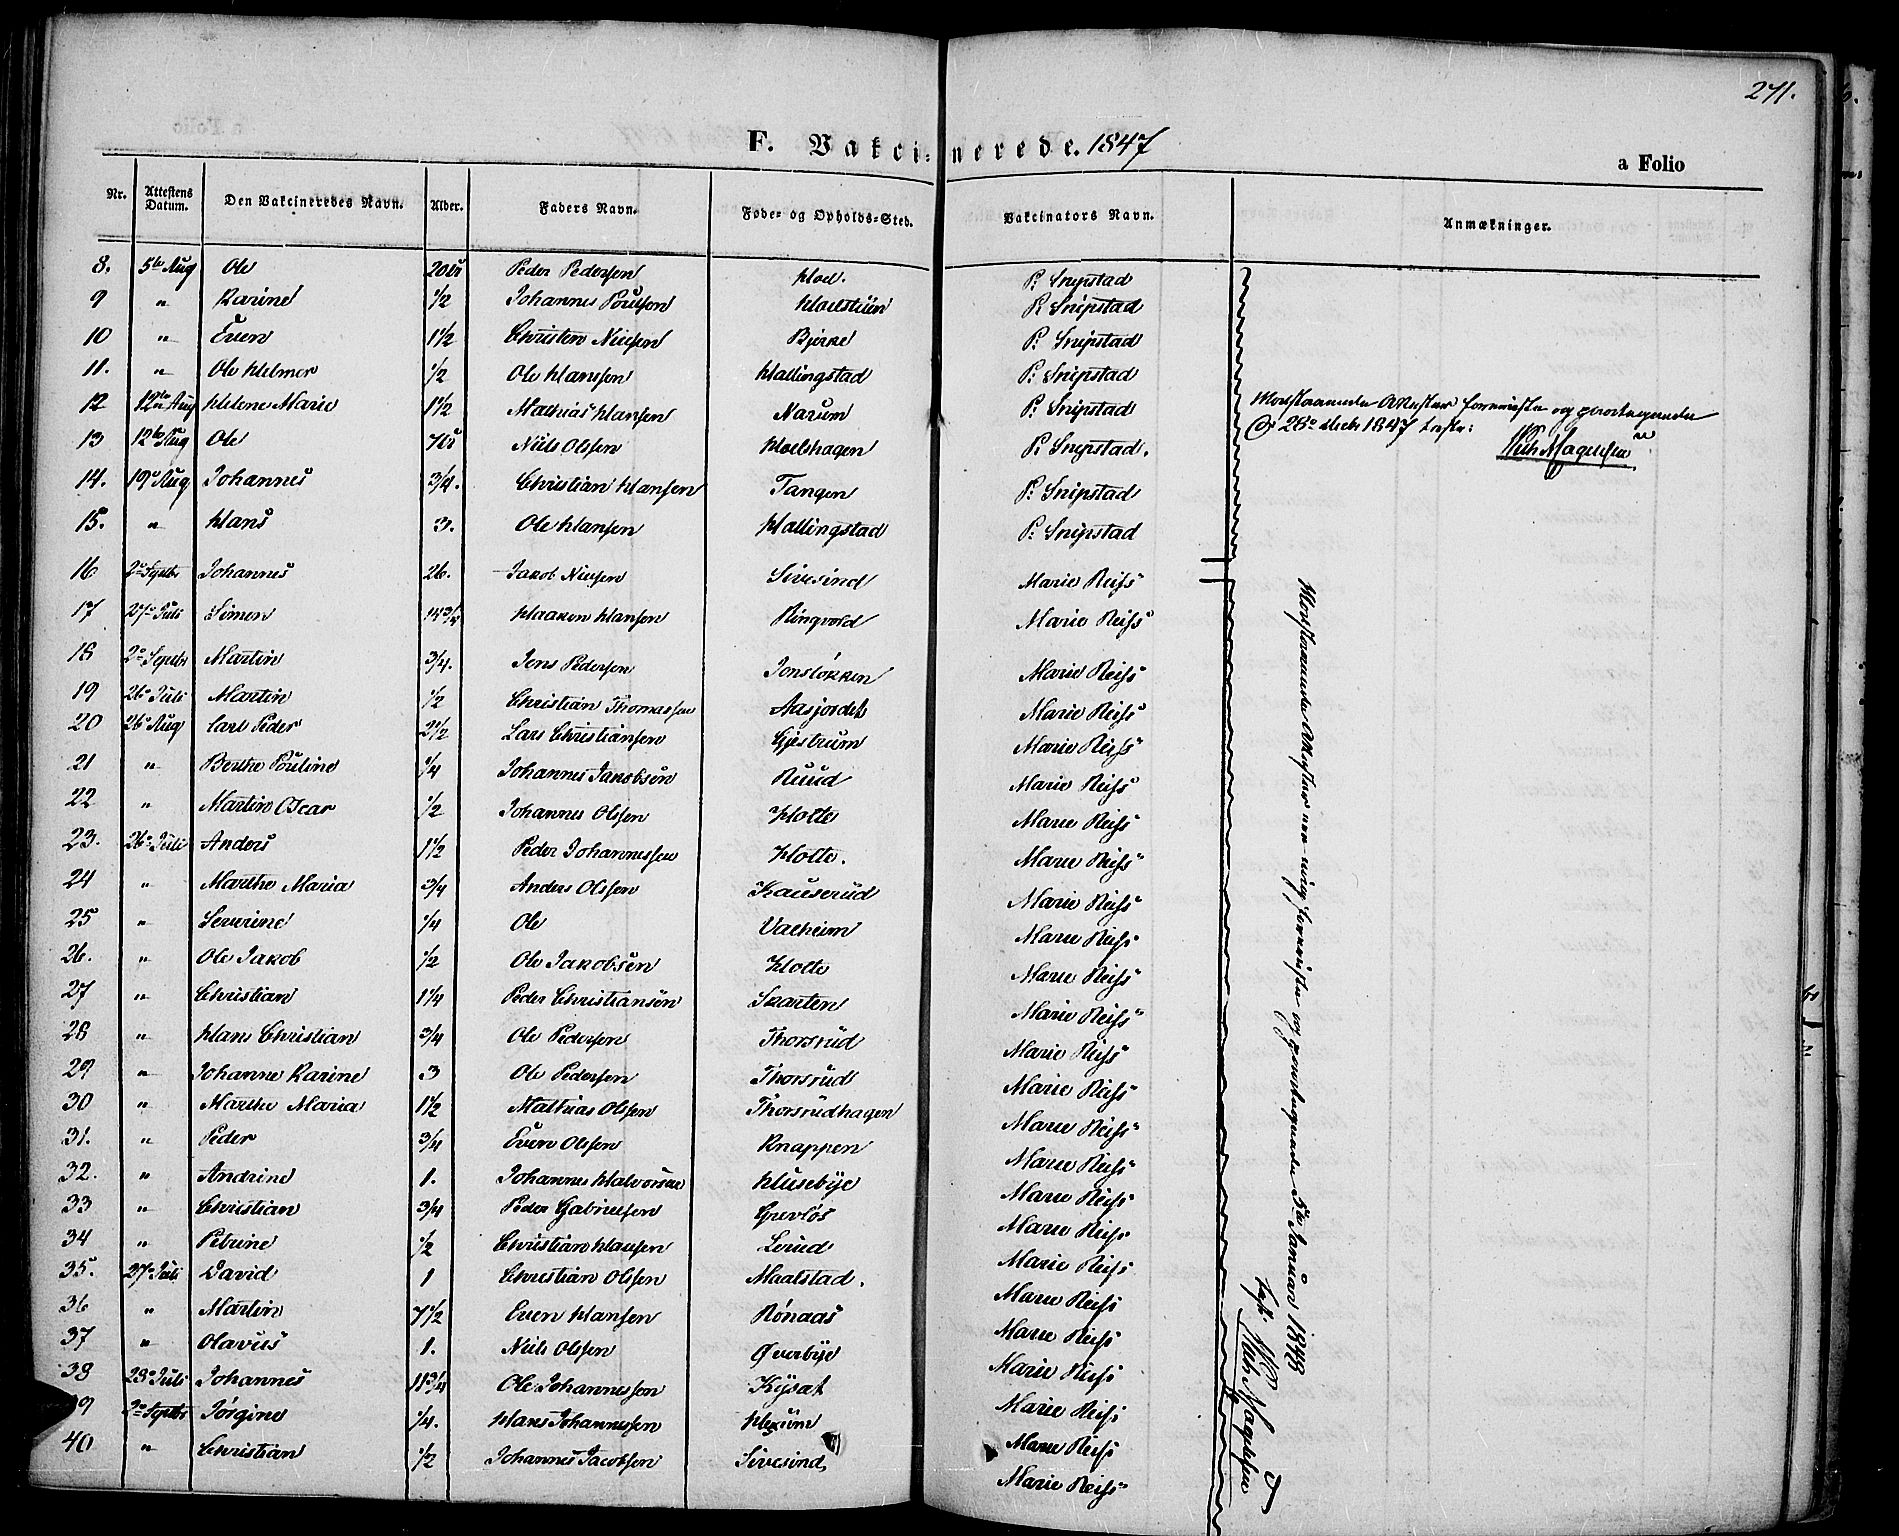 271.
F. Vakcinerede. 1847
a Folio
Nr. Attestens Datum. Den Vakcineredes Navn. Alder. Faders Navn. Føde- og Opholds-Sted. Vakcinators Navn. Anmærkninger.
8. 5te Aug Ole Peder Pedersen Hoel. P: Snipstad
9 " Karine 1/2 Johannes Poulsen Hoelstuen P: Snipstad
10 " Even 1 1/2 Christen Nielsen Bjerke P: Snipstad
11. " Ole Helmer 1/2 Ole Hansen Hallingstad P: Snipstad
12 12te Aug Helene Marie 1 1/2 Mathias Hansen Narum P: Snipstad
13 12te Aug Ole Niels Olssen Hoelshagen P: Snipstad.
14. 19de Aug Johannes 3/4. Christian Hansen Tangen P: Snipstad
15. " Hans 3. Ole Hansen Hallingstad P: Snipstad
16 2den Septbr Johannes 26. Jakob Nielsen Sivesind Marie Reiss
17 27de Juli Simon 14 3/4 Haaken Hansen Ringvold Marie Reiss
18 2den Septbr Martin 3/4. Jens Pedersen Jensløkken Marie Reiss
19 26de Juli Martin 1/2 Christian Thomassen Aasjordet Marie Reiss
20 26de Aug Carl Peder 2 1/2 Lars Christiansen Gjestrum Marie Reiss
21 " Berthe Pouline 1/4 Johannes Jakobsen Ruud Marie Reiss
22 " Martin Oscar 1/2 Johannes Olssen Holte Marie Reiss
23. 26de Juli Anders 1 1/2 Peder Johannessen Holte. Marie Reiss
24 " Marthe Maria 3/4 Anders Olssen Kauserud Marie Reiss
25 " Severine 1/4 Ole Valheim Marie Reiss
26. " Ole Jakob 1/2 Ole Jakobsen Holte Marie Reiss
27 " Christian 1 1/4 Peder Christiansen Skarten Marie Reiss
28 " Hans Christian 3/4 Ole Pedersen Thorsrud Marie Reiss
29 " Johanne Karine 3 Ole Pedersen Thorsrud Marie Reiss
30 " Marthe Maria 1 1/2 Mathias Olssen Thorsrudhagen Marie Reiss
31. " Peder 3/4 Even Olssen Knappen Marie Reiss
32. " Andrine 1. Johannes Halvorsen Husebye Marie Reiss
33 " Christian 3/4 Peder Gabrielsen Grevløs Marie Reiss
34 " Petrine 1/2 Christian Hansen Lerud Marie Reiss
35. 27de Juli David 1 Christian Olssen Maalstad. Marie Reiss
36 " Martin 7 1/2 Even Hansen Rønaas Marie Reiss
37 " Olavus 1. Niels Olssen Øverbye Marie Reiss
38 28de Juli Johannes 11 3/4 Ole Johannessen Kysæt Marie Reiss
39 2den Septbr Jørgine 1/4. Hans Johannessen Hexum Marie Reiss
40 " Christian 1/2 Johannes Jacobsen Sivesind Marie Reiss
Marie Reiss
Hosstaaende Attester foreviste og
28de 1847 Magelssen
Hosstaaende Attester foreviste og 5te Januar 1848
Magelssen